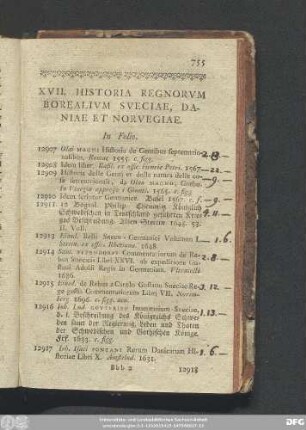 755
XVII. HISTORIA REGNORVM
BOREALIVM SVECIAE, DA-
NIAE ET NORVEGIAE.
In Folio.
12907 Olai MAGNI Historia de Gentibus septentrio-
nalibus. Romae 1555. c. fig. 2.8
12908 Idem liber. Basil. ex offic. Henric Petri. 1567.
12909 Historia delle Genti et della natura delle cose
settentrionali, da Olao MAGNO,
In Venetia appresso i Giunti. 1565. c. fig.
12910 Idem
Basel 1567. c. f.
12911 Bogisl. Philip. Chemnitz Königlich
Schwedischen in Teutschland geführten Krie-
ges Beschreibung. Alten Stettin 1648. 53.
II. Voll.
12912 Belli Sueco-Germanici Volumen I. 1.6.
1648
12913 Commentariorum de Re-
bus Suecicis Libri XXVI. ab expeditione Gu-
stavi Adolfi Regis in Germaniam.
1686.
12915 de Rebus a Carolo Gustavo Sueciae Re-
ge gestis Commentariorum Libri VII. Norim-
berg 1696. c. fig. aen.
12916 Inventarium Sueciae, 1.13.
d. i. Beschreibung des Königreichs Schwe-
den samt der Regierung, Leben und Thaten
der Schwedischen und Gothischen Könige.
Fcf. 1633. c. fig.
12917 Ioh. Isaci PONTANI Rerum Danicarum Hi- 1.6.
storiae Libri X. Amstelod. 1631.
Bbb 2
12918